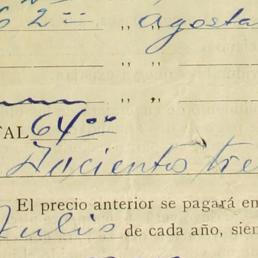 62 00 „ „ Agosto
„ „
TAL 64 00
El precio anterior se pagará en
Julio de cada año, sien